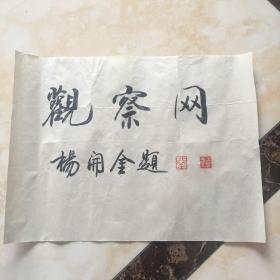 觀察网
楊開金題